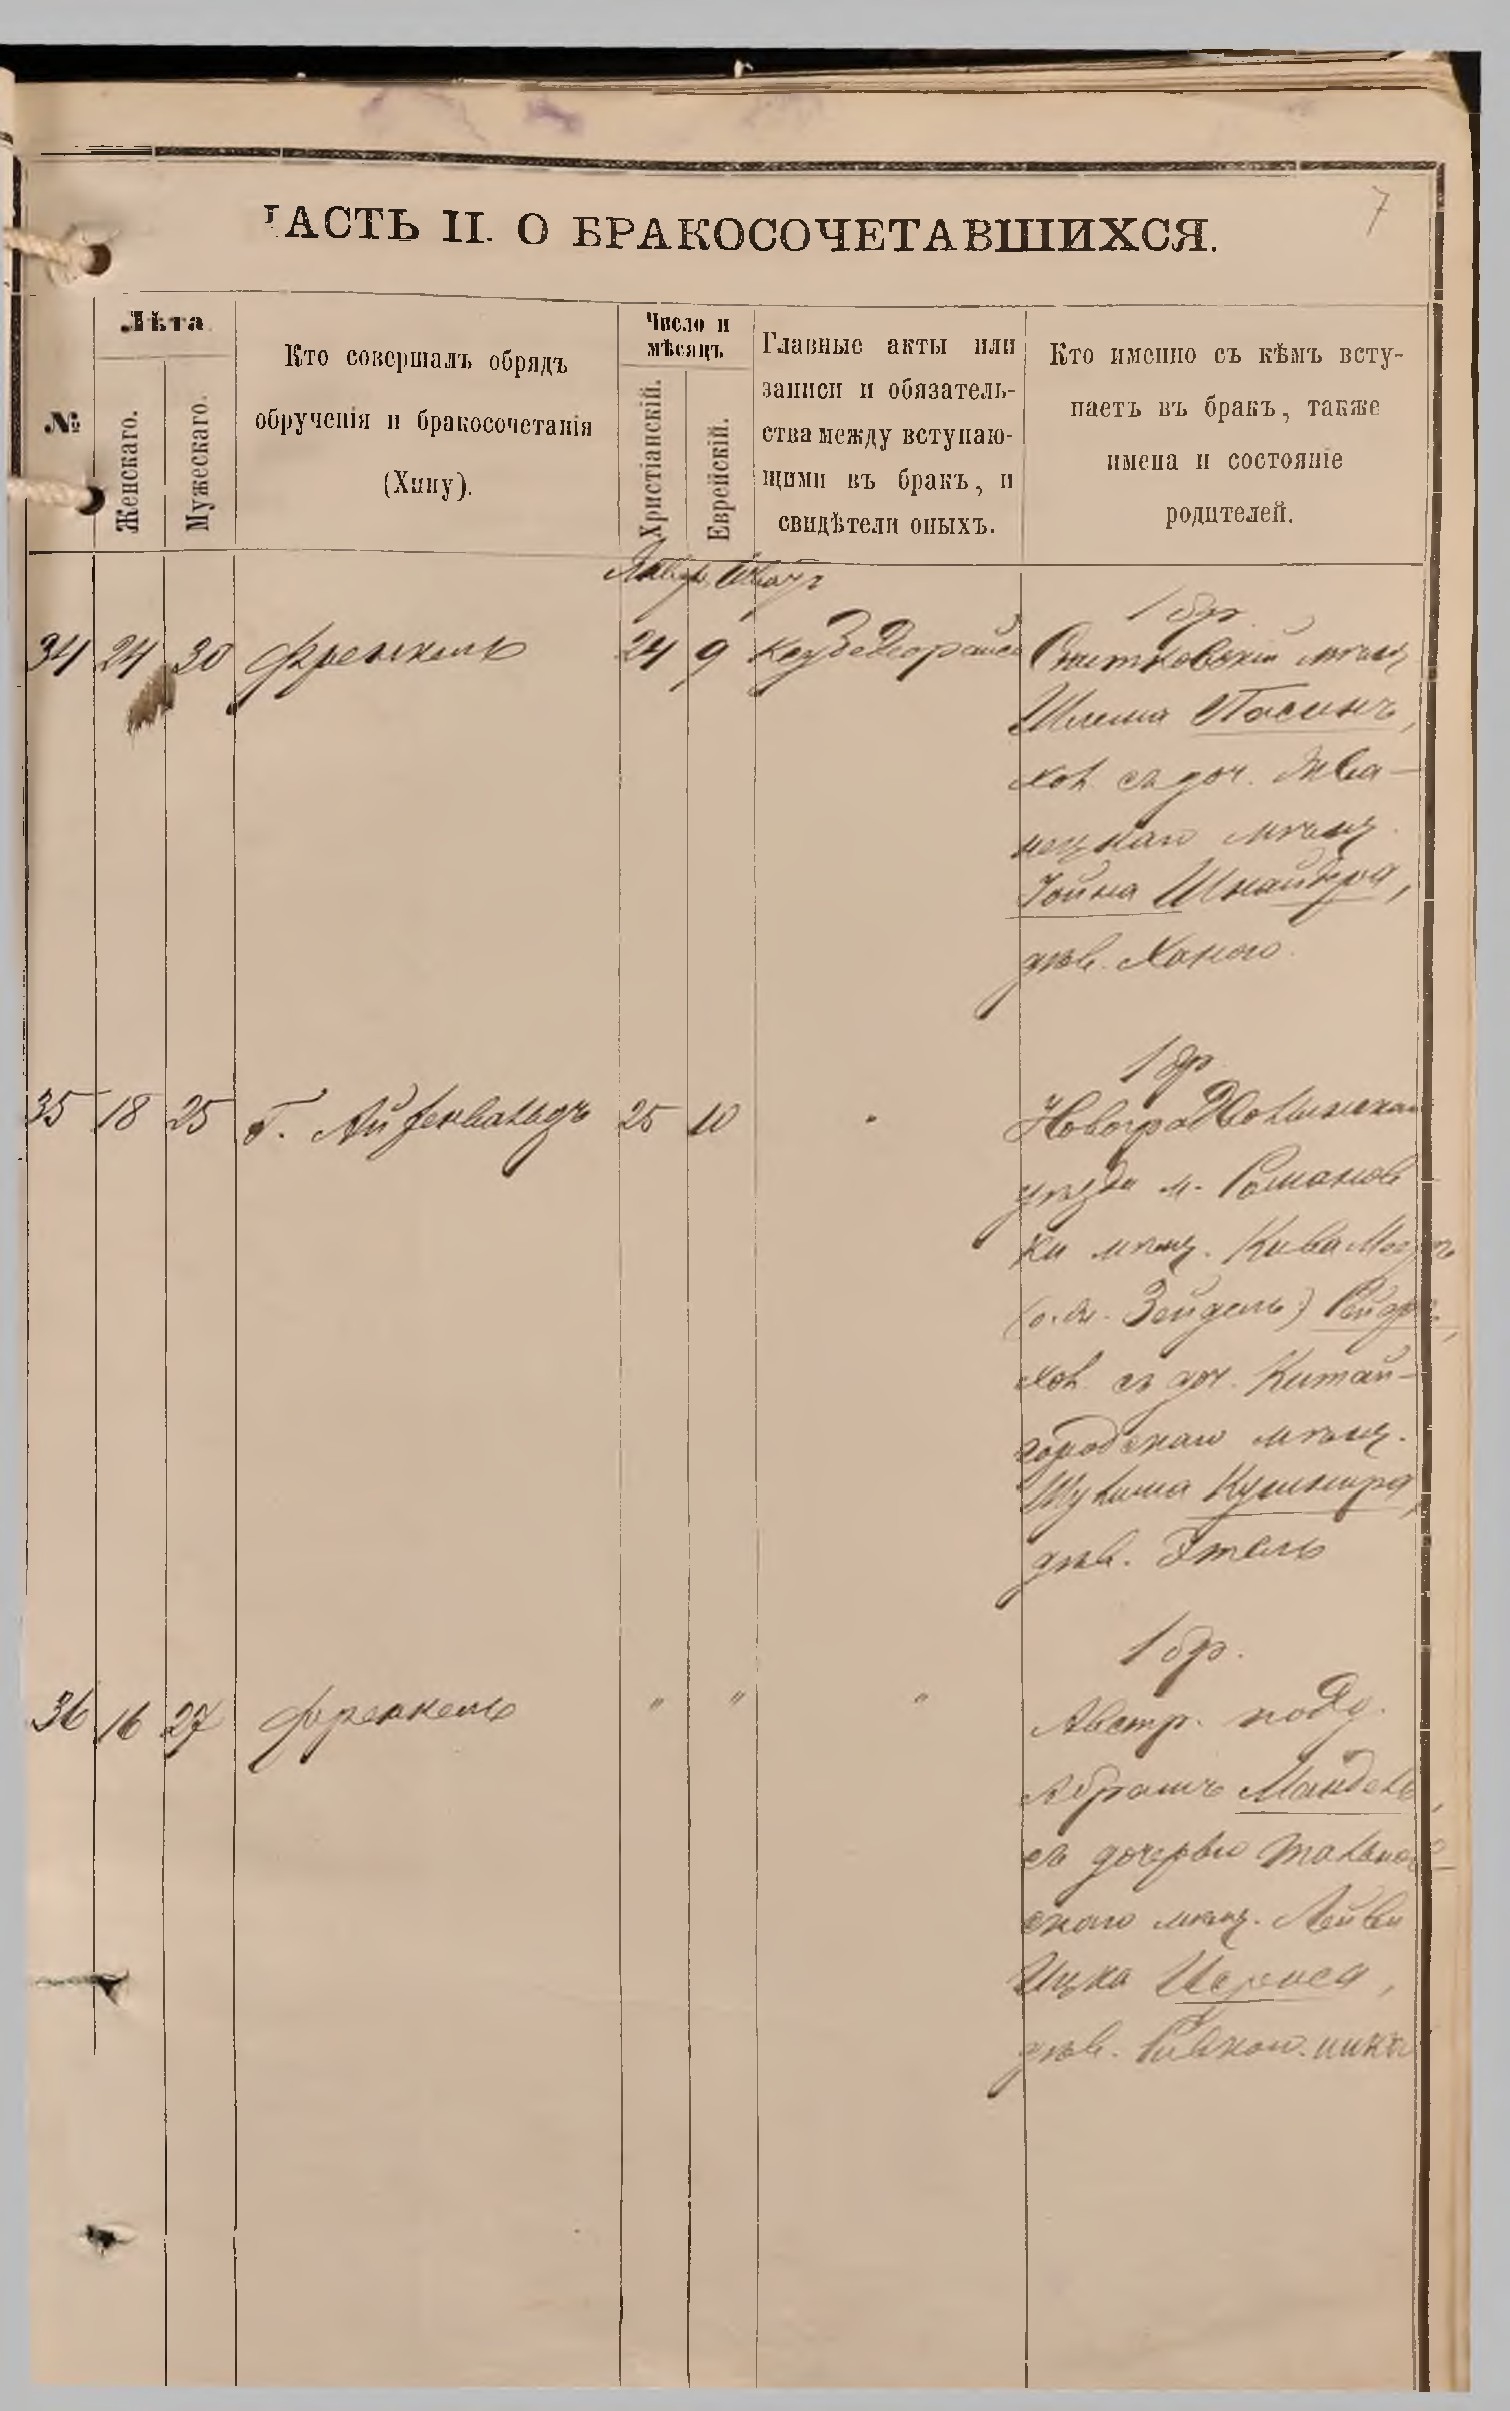 7
ЧАСТЬ II. О БРАКОСОЧЕТАВШИХСЯ.
№
Лѣта
Женскаго.
Мужескаго.
Кто совершалъ обрядъ
обрученія и бракосочетанія
(Хупу).
Число и
мѣсяцъ
Христіанскій.
Еврейскій.
Главные акты или
записи и обязатель-
ства между вступаю-
щими въ бракъ, и
свидѣтели оныхъ.
Кто именно съ кѣмъ всту-
паетъ въ бракъ, также
имена и состояніе
родителей.
Январ. Шватъ
1 бр.
34 24 30 Френкель 24 9
Снитковскій мѣщ.
Шлема
хол. съ доч. Жва-
нецкаго мѣщ.
Іойна Шнайдера,
дѣв. Ханою.
1 бр.
35 18 25 Г. Айзенвальдъ 25 10 "
Новоградволынскаго
уѣзда м. Романов
ки мѣщ. Кива
(о. Зейдель)
хол. съ доч. Китай-
городскаго мѣщ.
Шулима Кушнира,
дѣв. Этель
1 бр.
36 16 27 Френкель " " "
Австр. подд.
Абрамъ Мандель,
съ дочерью Тальнов-
скаго мѣщ. Лейви
Ицка
дѣв. Ривкою